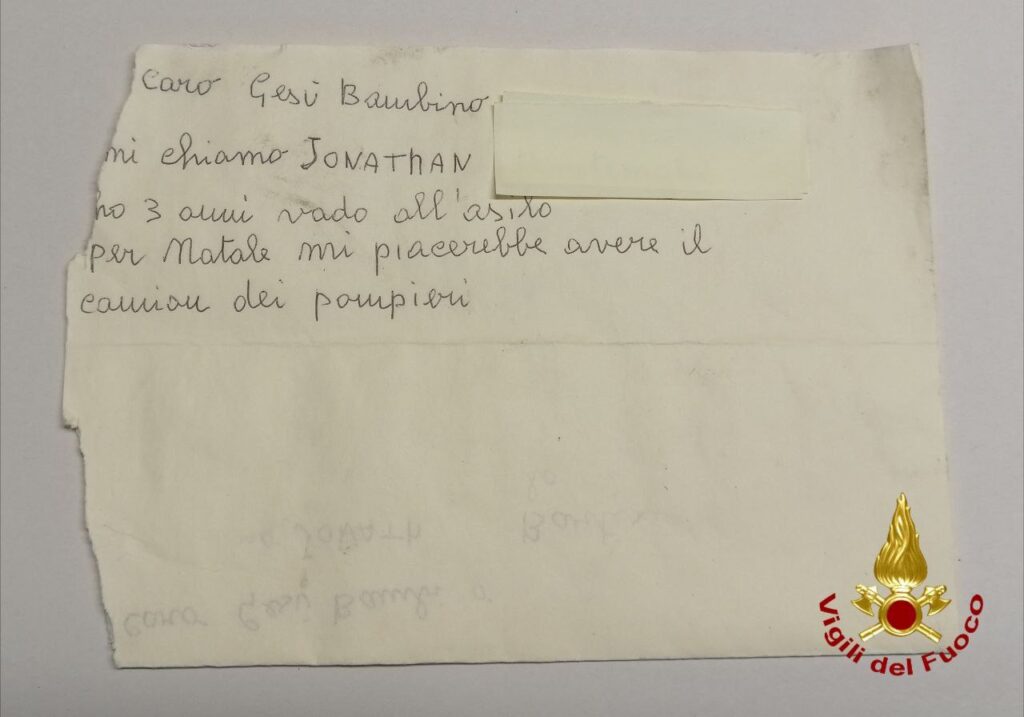 Caro Gesù Bambino
mi chiamo JONATHAN
ho 3 anni vado all'asilo
per Natale mi piacerebbe avere il
camion dei pompieri
Vigili del Fuoco